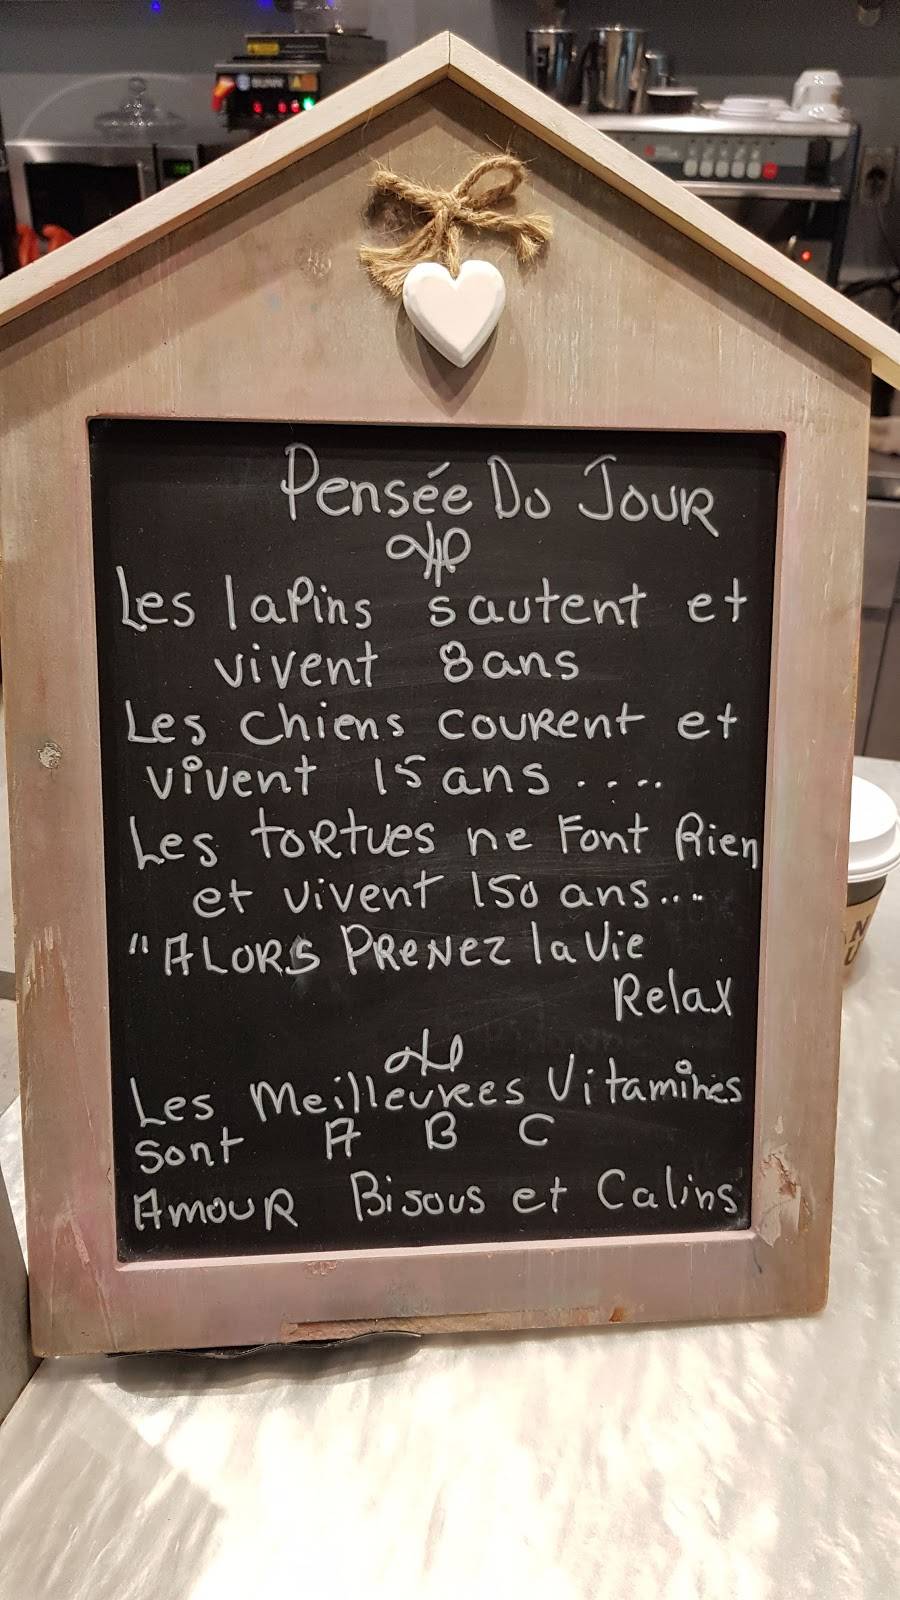 BUNN
Pensée Du Jour
Les lapins sautent et
vivent 8 ans
Les chiens courent et
vivent 15 ans ....
Les tortues ne Font Rien
et vivent 150 ans....
"ALORS PRENEZ la Vie
Relax
Les Meilleures Vitamines
sont A B C
Amour Bisous et Calins